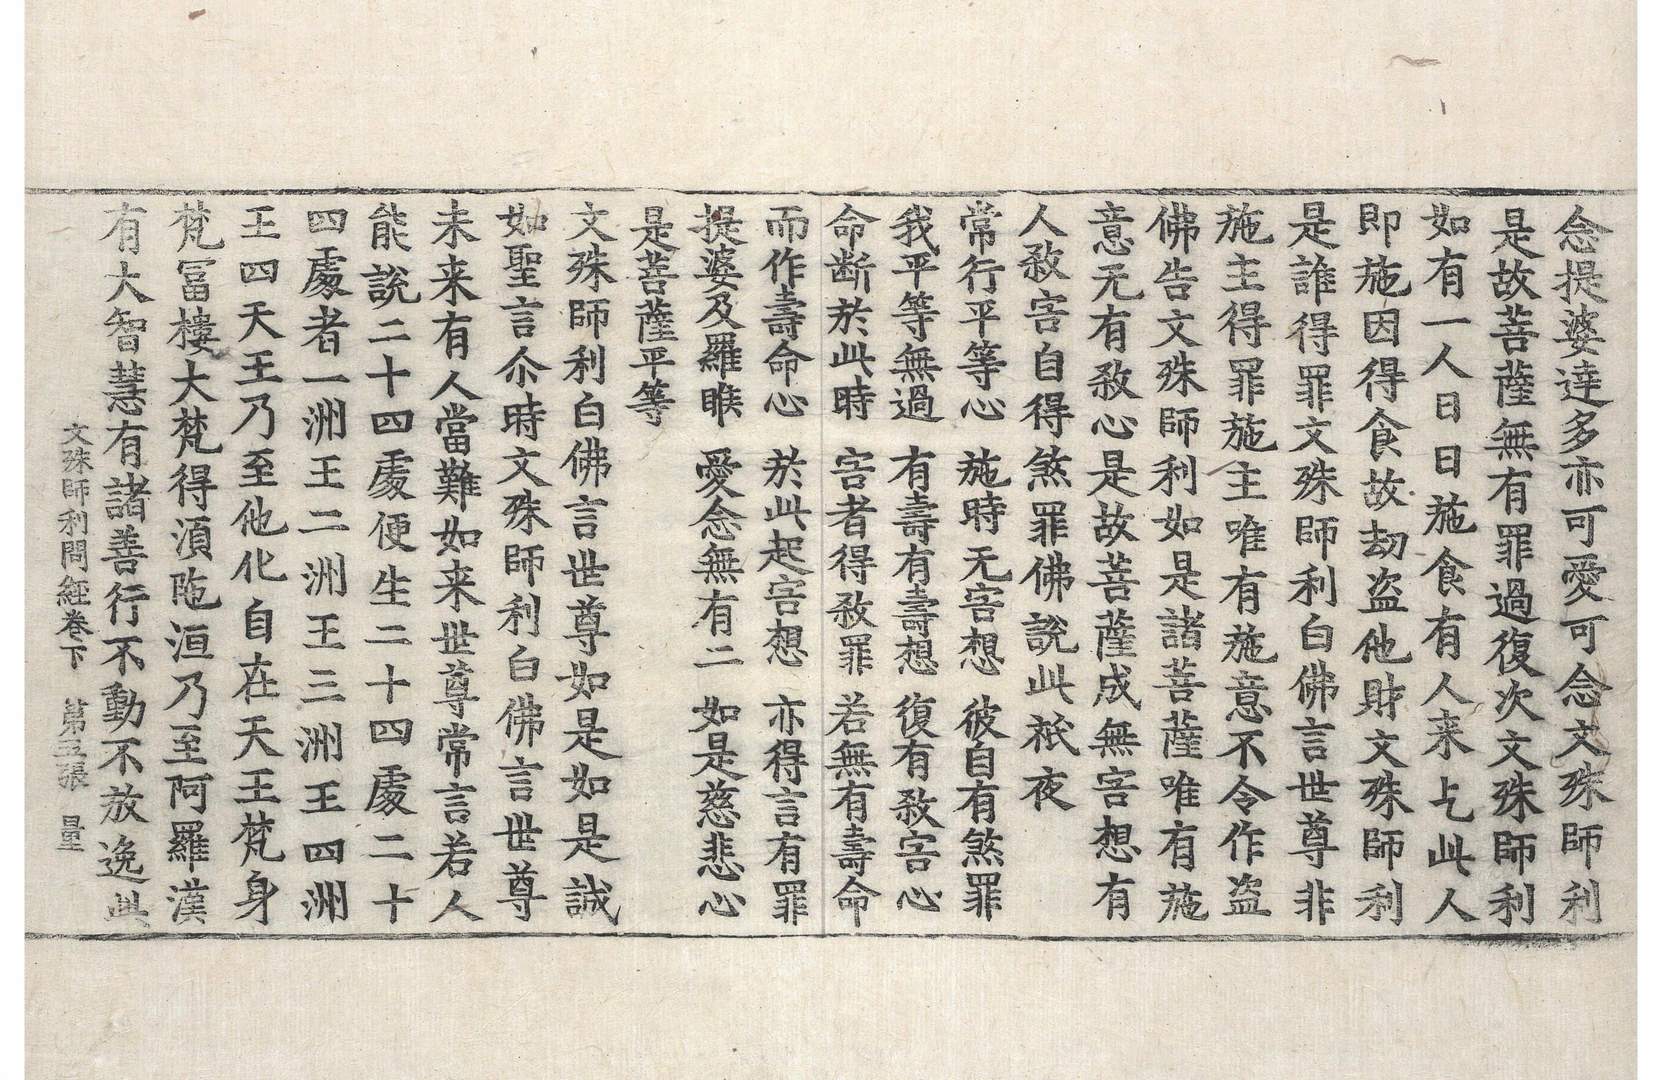 念提婆達多亦可愛可念文殊師利
是故菩薩無有罪過復次文殊師利
如有一人日日施食有人来乞此人
即施因得食故劫盗他財文殊師利
是誰得罪文殊師利白佛言世尊非
施主得罪施主唯有施意不令作盗
佛告文殊師利如是諸菩薩唯有施
意无有敎心是故菩薩成無害想有
人敎害自得煞罪佛說此祇夜
常行平等心　施時无害想　彼自有煞罪
我平等無過　有壽有壽想　復有敎害心
命断於此時　害者得敎罪　若無有壽命
而作壽命心　於此起害想　亦得言有罪
提婆及羅睺　愛念無有二　如是慈悲心
是菩薩平等
文殊師利白佛言世尊如是如是誠
如聖言尒時文殊師利白佛言世尊
未来有人當難如来世尊常言若人
能說二十四處便生二十四處二十
四處者一洲王二洲王三洲王四洲
王四天王乃至他化自在天王梵身
梵冨樓大梵得湏陁洹乃至阿羅漢
有大智慧有諸善行不動不放逸此
文殊師利問經卷下　第五張　量